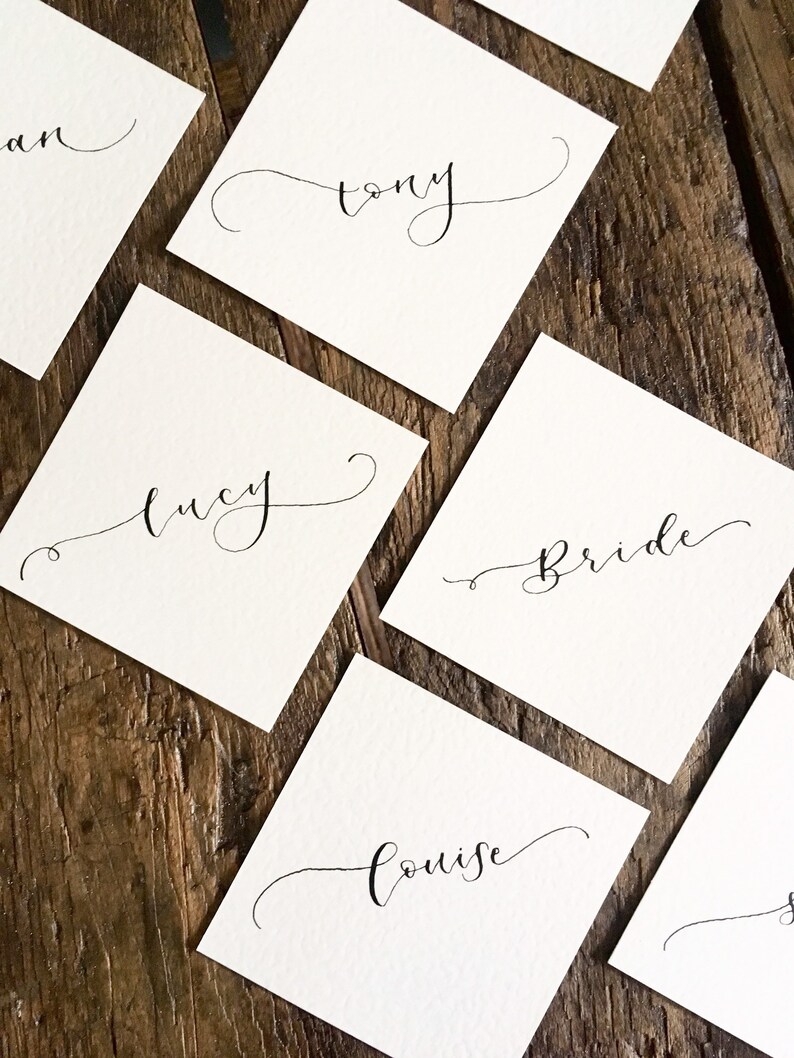 an
tony
lucy
Bride
louise
s